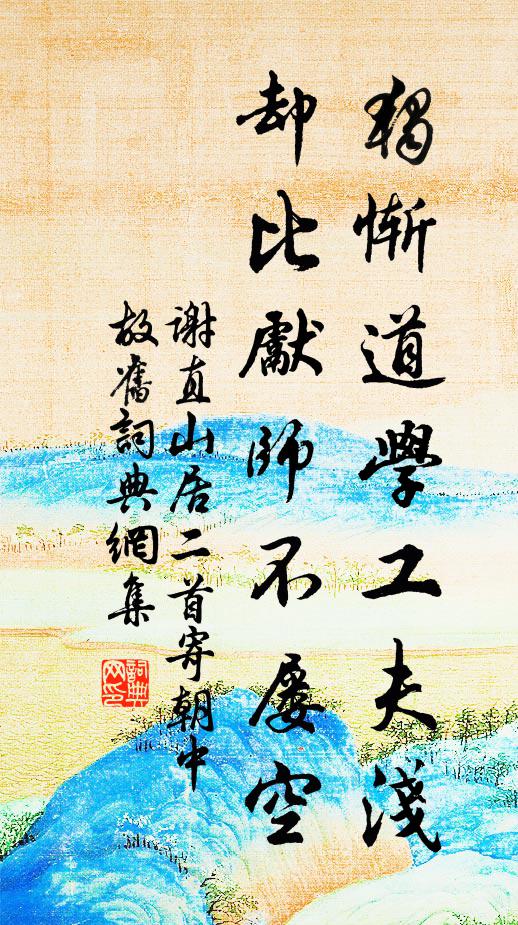 獨惭道學工夫淺
却比獻師不屡空
谢直山居二首寄朝中
故舊詞典網集
詞典网印